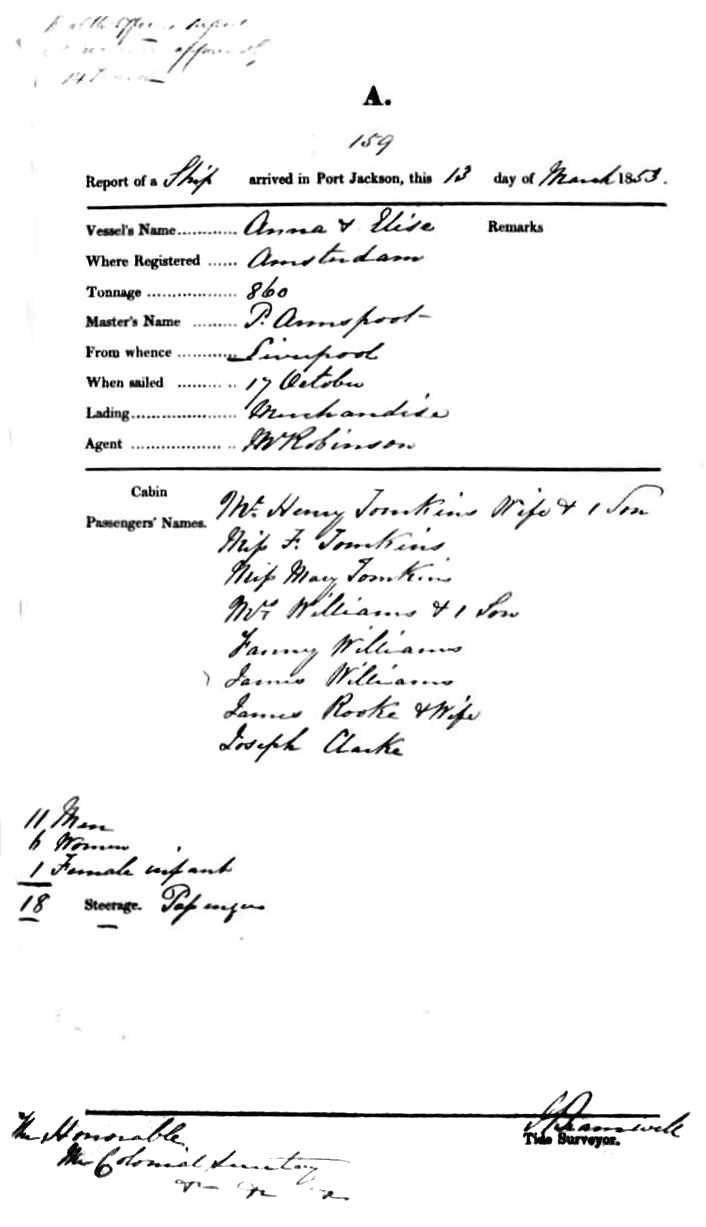 A.
159
Report of a Ship arrived in Port Jackson, this 13 day of March 1853.
Vessel's Name............ Anna & Elise Remarks
Where Registered ...... Amsterdam
Tonnage .................. 860
Master's Name .........
From whence ............ Liverpool
When sailed ......... .. 17 October
Lading..................... Merchandise
Agent .................... .. Robinson
Cabin
Passengers' Names. Mr. Henry Tomkins Wife & 1 Son
Miss F. Tomkins
Miss Mary Tomkins
Mrs Williams & 1 Son
Fanny Williams
James Williams
James Rooke & Wife
Joseph Clarke
11 Men
6 Women
1 Female infant
18 Steerage. Passengers
Tide Surveyor.
The Honorable
The Colonial Secretary